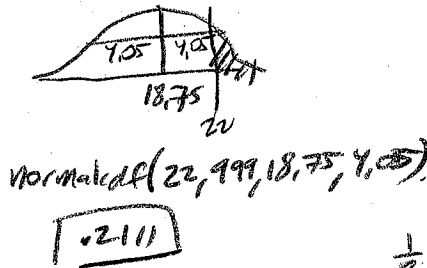 4,05 4,05
18,75
22
normalcdf(22, 999, 18,75, 4,05)
.2111